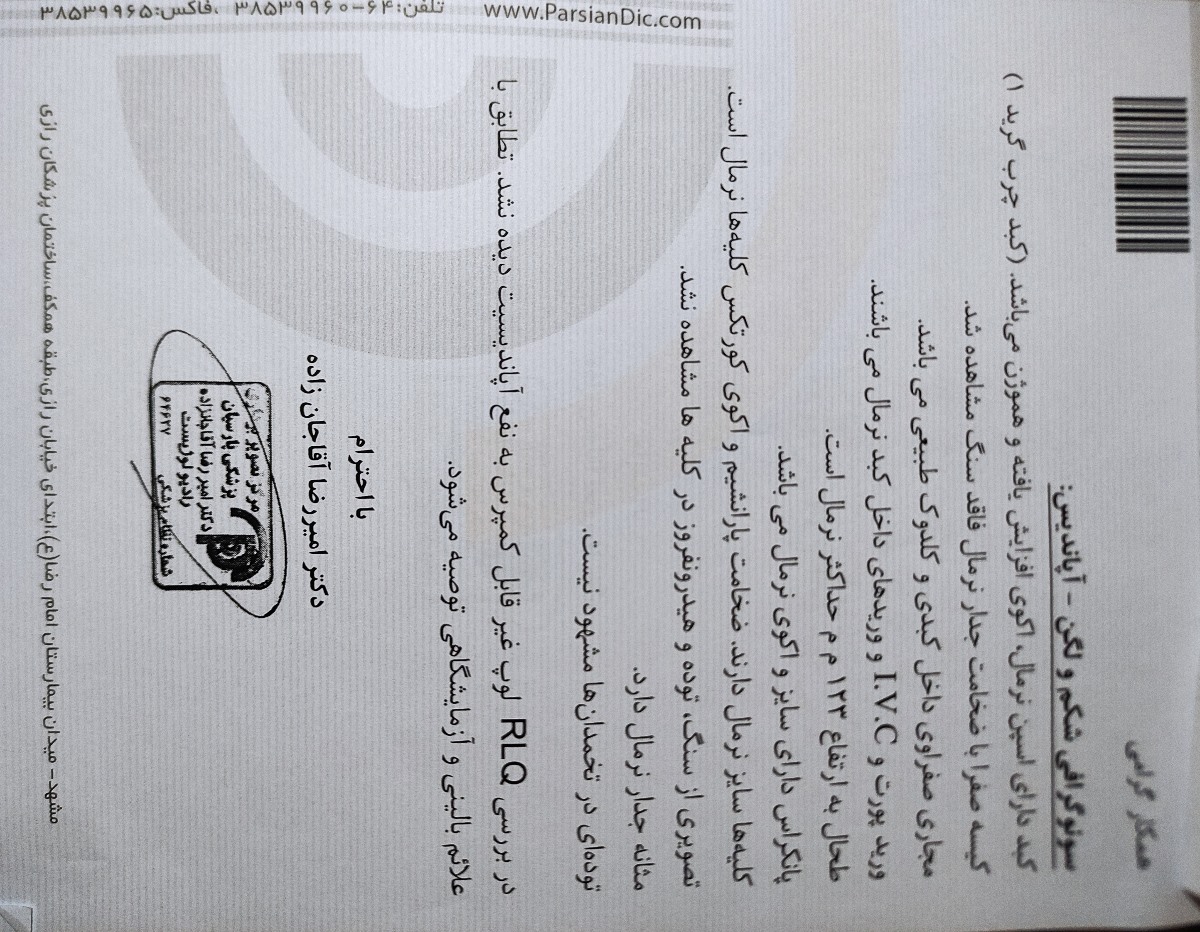 همکار گرامی
سونوگرافی شکم و لگن - آپاندیس:
کبد دارای اسپن نرمال، اکوی افزایش یافته و هموژن می‌باشد. (کبد چرب گرید ۱)
کیسه صفرا با ضخامت جدار نرمال فاقد سنگ مشاهده شد.
مجاری صفراوی داخل کبدی و کلدوک طبیعی می باشد.
ورید پورت و I.V.C و وریدهای داخل کبد نرمال می باشند.
طحال به ارتفاع ۱۲۳ م م حداکثر نرمال است.
پانکراس دارای سایز و اکوی نرمال می باشد.
کلیه‌ها سایز نرمال دارند. ضخامت پارانشیم و اکوی کورتکس کلیه‌ها نرمال است.
تصویری از سنگ، توده و هیدرونفروز در کلیه ها مشاهده نشد.
مثانه جدار نرمال دارد.
توده‌ای در تخمدان‌ها مشهود نیست.
در بررسی RLQ لوپ غیر قابل کمپرس به نفع آپاندیسیت دیده نشد. تطابق با
علائم بالینی و آزمایشگاهی توصیه می‌شود.
با احترام
دکتر امیررضا آقاجان زاده
مرکز تصویر برداری
پزشکی پارسیان
دکتر امیر رضا آقاجانزاده
رادیولوژیست
شماره نظام پزشکی ۶۴۶۲۷
www.ParsianDic.com
تلفن:۶۴-۳۸۵۳۹۹۶۰ ،فاکس:۳۸۵۳۹۹۶۵
مشهد- میدان بیمارستان امام رضا(ع)،ابتدای خیابان رازی،طبقه همکف،ساختمان پزشکان رازی